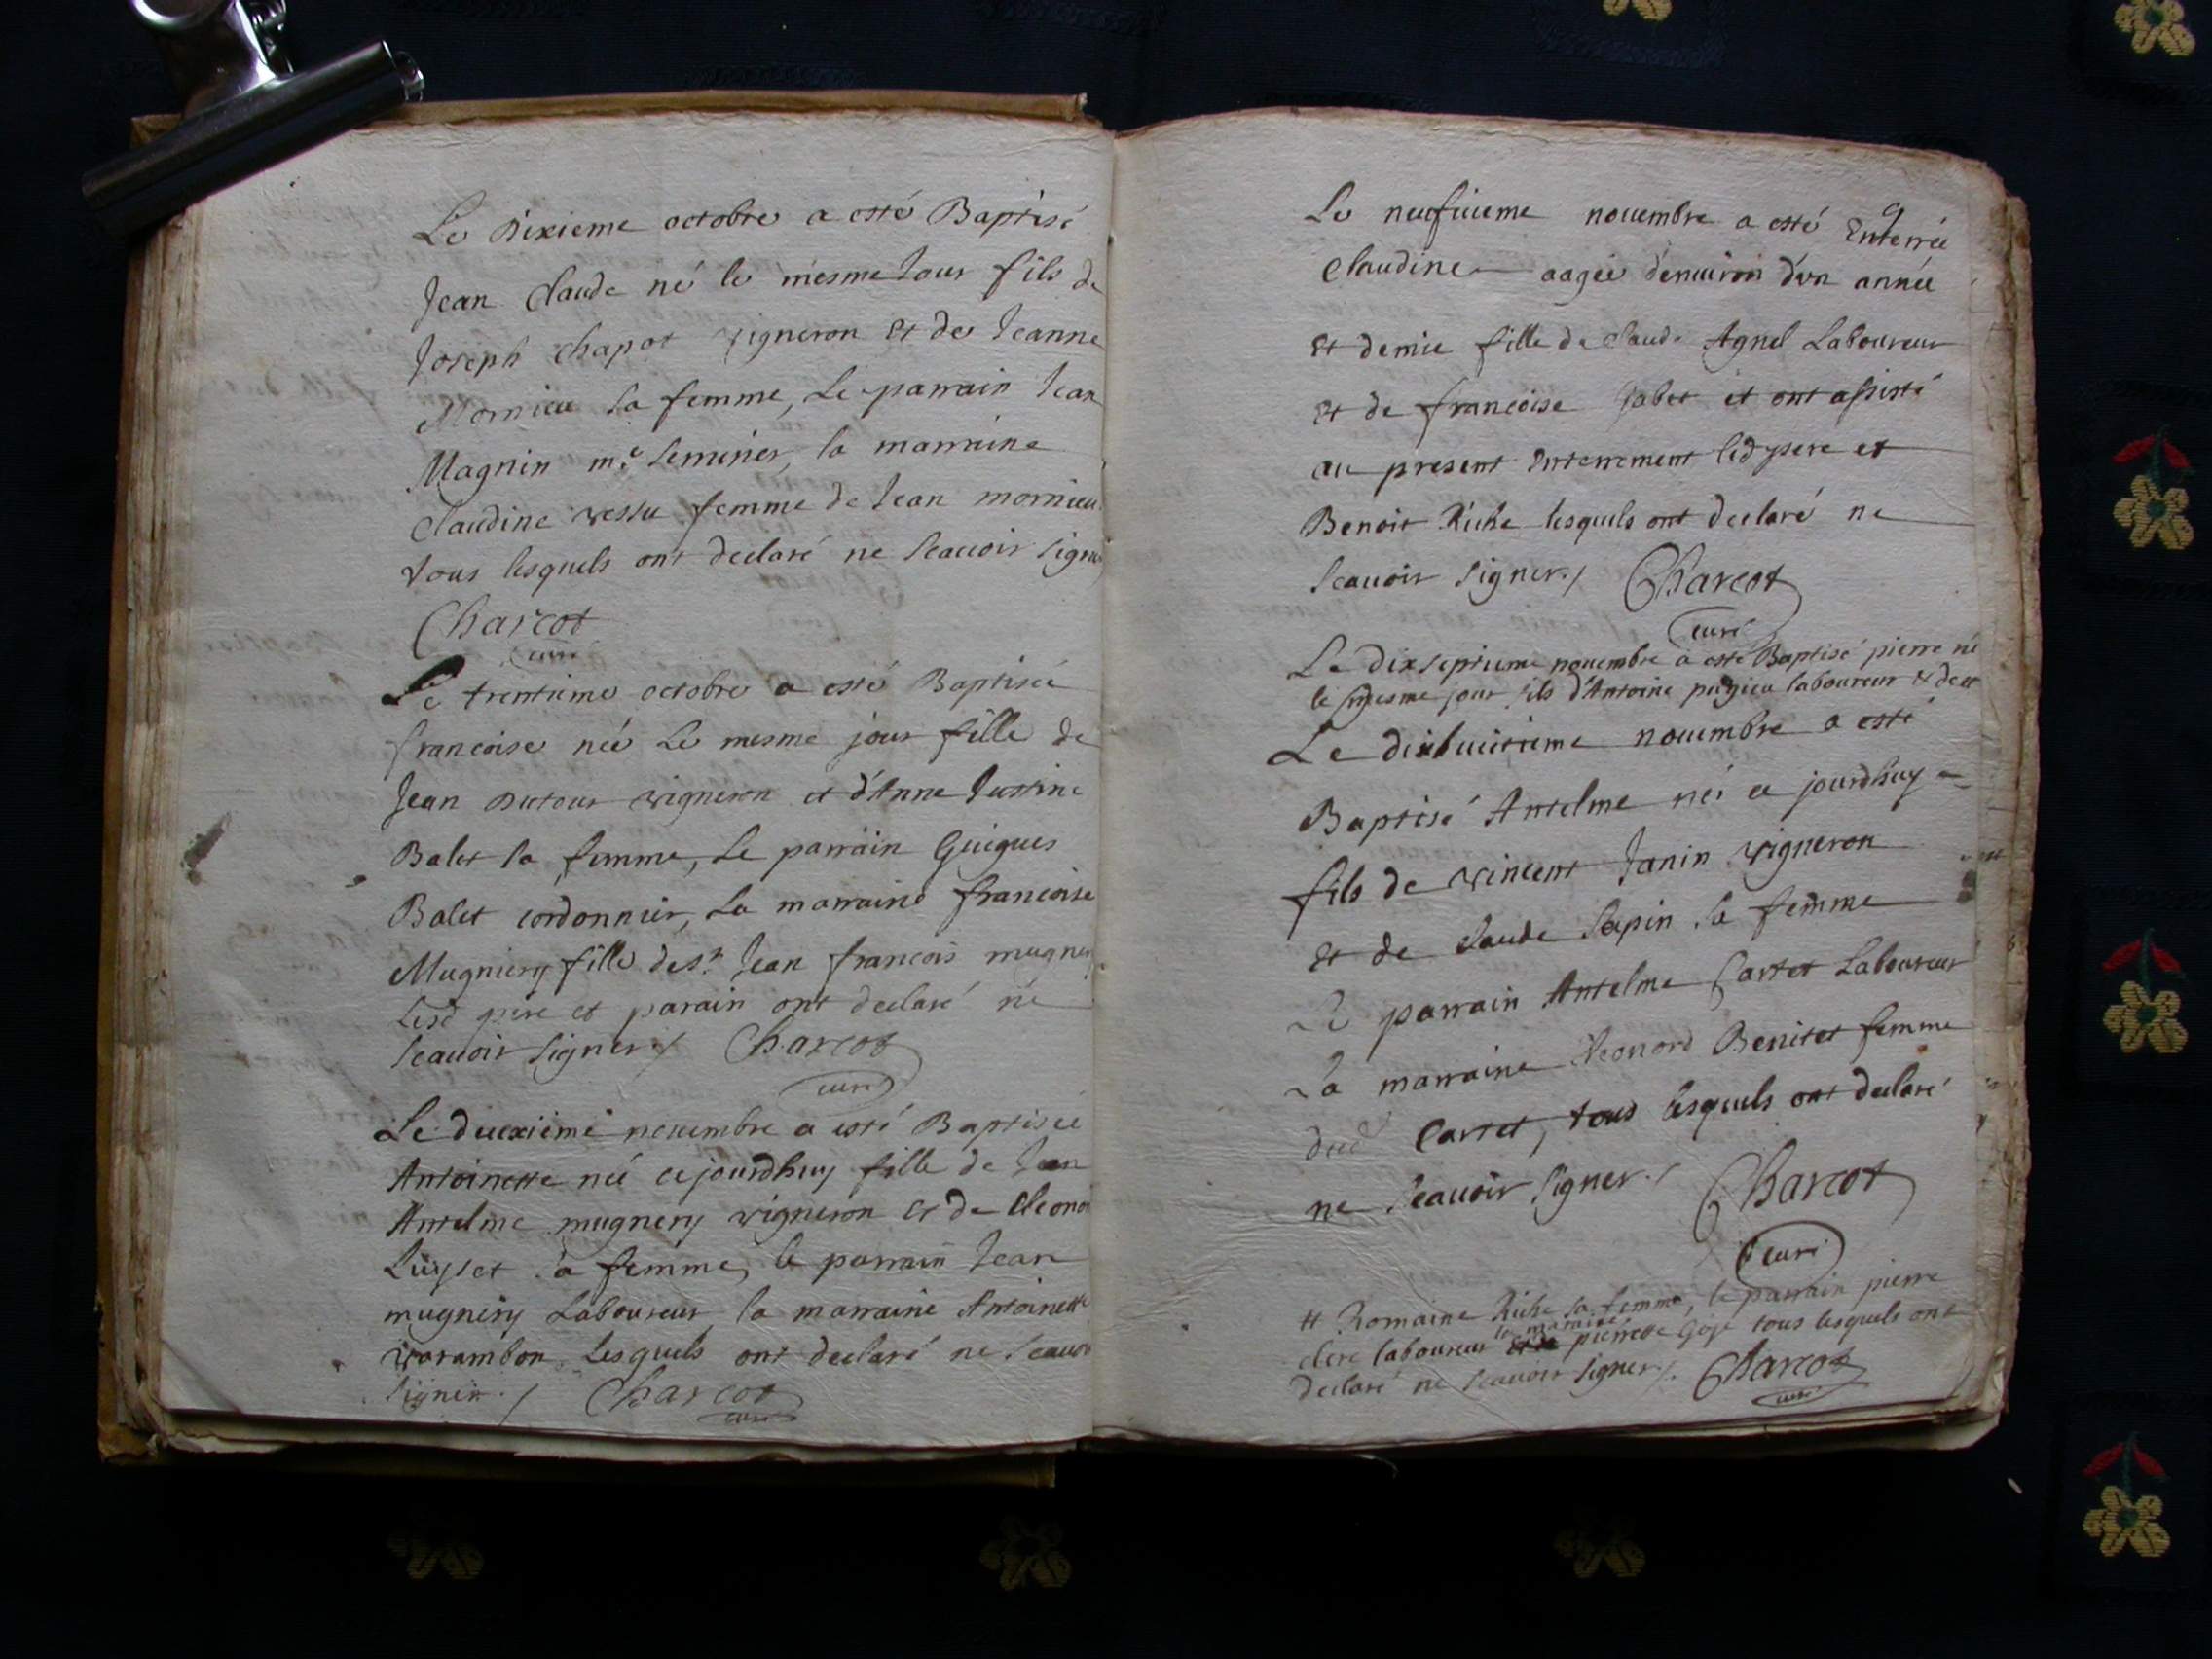 Le Dixieme octobre a esté Baptisé
Jean Claude né le mesme Jour fils de
Joseph Chapot vigneron Et de Jeanne
Mornieu sa femme, Le parrain Jean
Magnin me. la marraine
Claudine femme de Jean mornieu
tous lesquels ont declaré ne Scauoir Signer
Charcot
curé
Le trentieme octobre a esté Baptisée
francoise née Le mesme jour fille de
Jean Dutour vigneron et d'Anne Justine
Balet sa femme, Le parrain Guigues
Balet cordonnier, La marraine francoise
Mugniery fille de sr. Jean francois mugniery
Lesd père et parain ont declaré ne
Scauoir Signer./ Charcot
curé
Le deuxieme nouembre a esté Baptisée
Antoinette née ce jourdhuy fille de Jean
Antelme mugnery vigneron et de Eleonor
Luyset sa femme, le parrain Jean
mugniery Laboureur la marraine Antoinette
varambon Lesquels ont declaré ne Scauoir
Signer./ Charcot
curé
9
Le neufuieme nouembre a esté Enterrée
Claudine aagée d'enuiron d'vn année
Et demie fille de Claude Agnel Laboureur
Et de francoise Gabet et ont assisté
au present Enterrement led pere et
Benoit Riche lesquels ont declaré ne
Scauoir Signer./ Charcot
curé
Le dixseptieme nouembre a esté Baptisé pierre né
le mesme jour fils d'Antoine pugieu laboureur & de #
Le dixhuitieme nouembre a esté
Baptisé Antelme né ce jourdhuy
fils de vincent Janin vigneron
Et de Claude Sapin Sa femme
Le parrain Antelme Carret Laboureur
La marraine Eleonord Benitet femme
dud Carret, tous lesquels ont declaré
ne Scauoir Signer./ Charcot
curé
# Romaine Riche sa femme, le parrain pierre
clerc laboureur la maraine pierrette Goje tous lesquels ont
declaré ne scauoir signer./. Charcot
curé